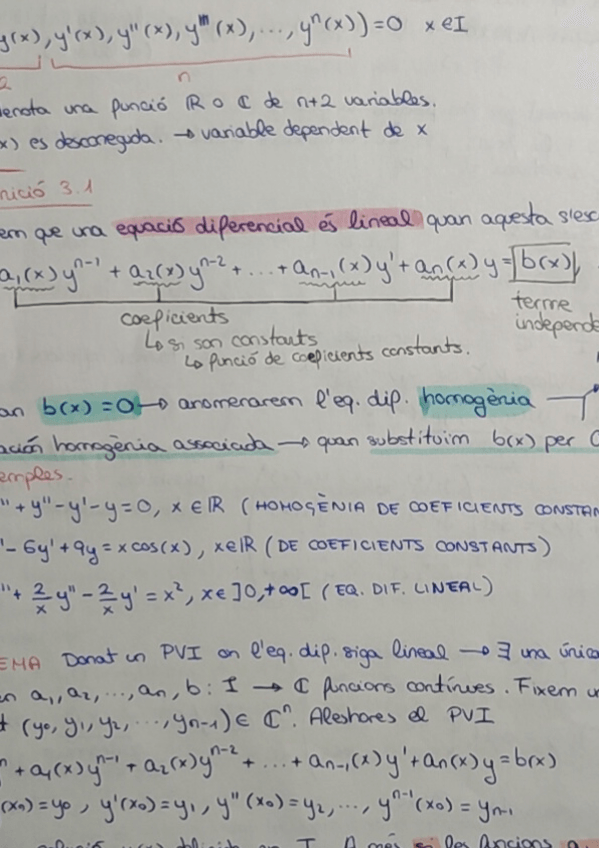 y(x), y'(x), y''(x), y'''(x), ..., yⁿ(x)) = 0 x ∈ I
2 n
denota una funció ℝ o ℂ de n+2 variables.
x) es desconeguda. → variable dependent de x
nició 3.1
em que una equació diferencial és lineal quan aquesta s'esc
a₁(x) yⁿ⁻¹ + a₂(x) yⁿ⁻² + ... + aₙ₋₁(x) y' + aₙ(x) y = b(x)
coeficients terme
↳ si son constants independe
↳ funció de coeficients constants.
an b(x) = 0 → anomenarem l'eq. dif. homogènia
ación homogènia associada → quan substituim b(x) per 0
emples.
'' + y'' - y' - y = 0, x ∈ ℝ (HOMOGÈNIA DE COEFICIENTS CONSTAN
' - 6y' + 9y = x cos(x), x ∈ ℝ (DE COEFICIENTS CONSTANTS)
'' + 2/x y'' - 2/x y' = x², x ∈ ]0, +∞[ (EQ. DIF. LINEAL)
EMA Donat un PVI on l'eq. dif. siga lineal → ∃ una única
en a₁, a₂, ..., aₙ, b : I → ℂ funcions contínues. Fixem
(y₀, y₁, y₂, ..., yₙ₋₁) ∈ ℂⁿ. Aleshores el PVI
ⁿ + a₁(x) yⁿ⁻¹ + a₂(x) yⁿ⁻² + ... + aₙ₋₁(x) y' + aₙ(x) y = b(x)
(x₀) = y₀, y'(x₀) = y₁, y''(x₀) = y₂, ..., yⁿ⁻¹(x₀) = yₙ₋₁
I. A més si les funcions a